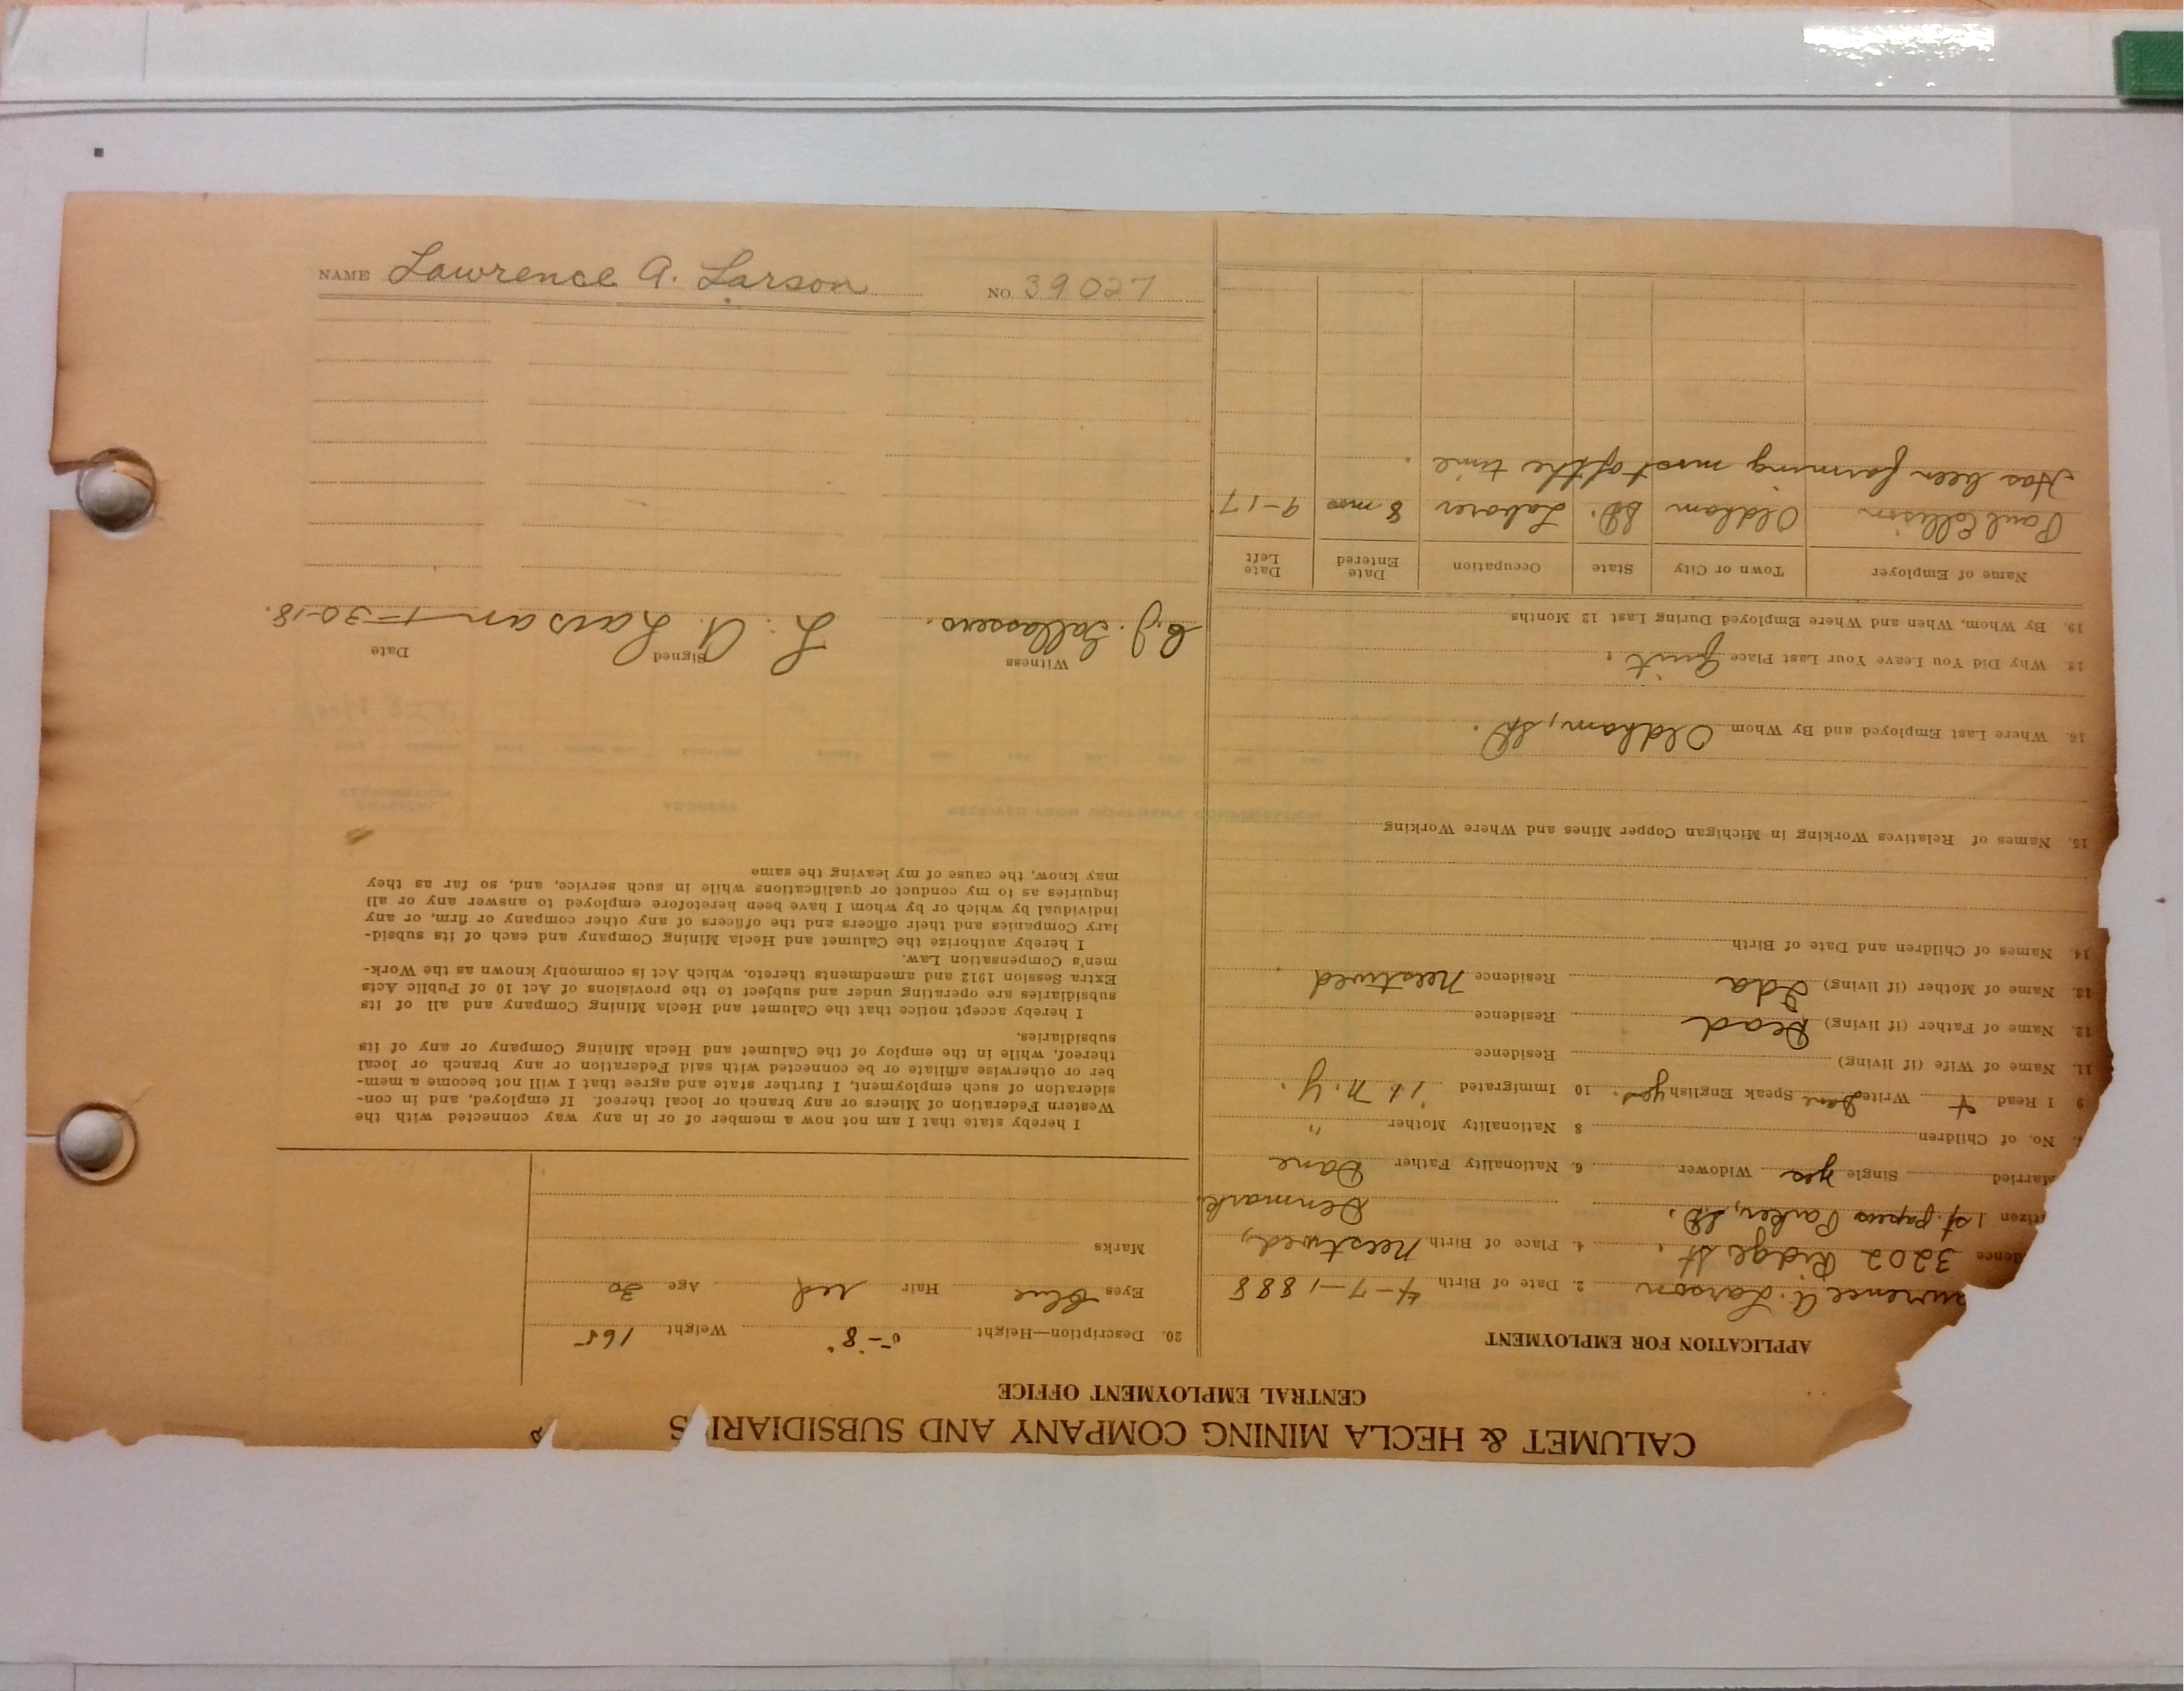 NAME Lawrence A. Larson NO 39027
CALUMET & HECLA MINING COMPANY AND SUBSIDIARI S
CENTRAL EMPLOYMENT OFFICE
APPLICATION FOR EMPLOYMENT
wrence A. Larson 2. Date of Birth 4-7-1888
dence 3202 Ridge St. 4. Place of Birth Neestved,
izen 1st. papers Parker, SD. Denmark.
Married Single yes Widower 6. Nationality Father Dane
7. No. of Children 8 Nationality Mother "
9 I Read & Write Dane Speak English yes. 10 Immigrated N.Y.
11. Name of Wife (if living) Residence
12. Name of Father (if living) Dead Residence
13. Name of Mother (if living) Ida Residence Neestved
14. Names of Children and Date of Birth
15. Names of Relatives Working in Michigan Copper Mines and Where Working
16. Where Last Employed and By Whom Oldham, SD.
18. Why Did You Leave Your Last Place Quit.
19. By Whom, When and Where Employed During Last 12 Months
Name of Employer Town or City State Occupation Date Entered Date Left
Paul Ellison Oldham SD. Laborer 8 mos 9-17
Has been farming most of the time.
20. Description—Height 5-8" Weight 165
Eyes Blue Hair red Age 30
Marks
I hereby state that I am not now a member of or in any way connected with the
Western Federation of Miners or any branch or local thereof. If employed, and in con-
sideration of such employment, I further state and agree that I will not become a mem-
ber or otherwise affiliate or be connected with said Federation or any branch or local
thereof, while in the employ of the Calumet and Hecla Mining Company or any of its
subsidiaries.
I hereby accept notice that the Calumet and Hecla Mining Company and all of its
subsidiaries are operating under and subject to the provisions of Act 10 of Public Acts
Extra Session 1912 and amendments thereto, which Act is commonly known as the Work-
men's Compensation Law.
I hereby authorize the Calumet and Hecla Mining Company and each of its subsid-
iary Companies and their officers and the officers of any other company or firm, or any
individual by which or by whom I have been heretofore employed to answer any or all
inquiries as to my conduct or qualifications while in such service, and, so far as they
may know, the cause of my leaving the same
Witness Signed Date
L. A. Larsan 1-30-18.